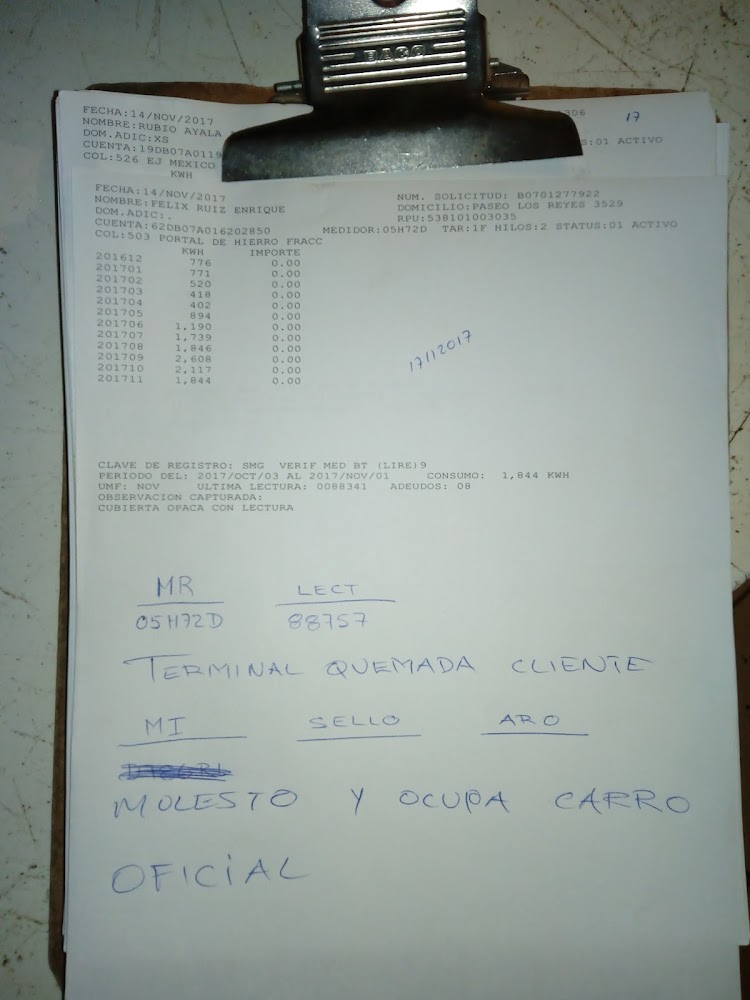 BACO
FECHA:14/NOV/2017
306
17
NOMBRE:RUBIO AYALA
DOM.ADIC:XS
CUENTA:19DB07A0119
S:01 ACTIVO
COL:526 EJ MEXICO
KWH
FECHA:14/NOV/2017 NUM. SOLICITUD: B0701277922
NOMBRE:FELIX RUIZ ENRIQUE DOMICILIO:PASEO LOS REYES 3529
DOM.ADIC:. RPU:538101003035
CUENTA:62DB07A016202850 MEDIDOR:05H72D TAR:1F HILOS:2 STATUS:01 ACTIVO
COL:503 PORTAL DE HIERRO FRACC
KWH IMPORTE
201612 776 0.00
201701 771 0.00
201702 520 0.00
201703 418 0.00
201704 402 0.00
201705 894 0.00
201706 1,190 0.00
201707 1,739 0.00
201708 1,846 0.00
201709 2,608 0.00
201710 2,117 0.00
201711 1,844 0.00
17112017
CLAVE DE REGISTRO: SMG VERIF MED BT (LIRE)9
PERIODO DEL: 2017/OCT/03 AL 2017/NOV/01 CONSUMO: 1,844 KWH
UMF: NOV ULTIMA LECTURA: 0088341 ADEUDOS: 08
OBSERVACION CAPTURADA:
CUBIERTA OPACA CON LECTURA
MR LECT
05H72D 88757
TERMINAL QUEMADA CLIENTE
MI SELLO ARO
MOLESTO Y OCUPA CARRO
OFICIAL